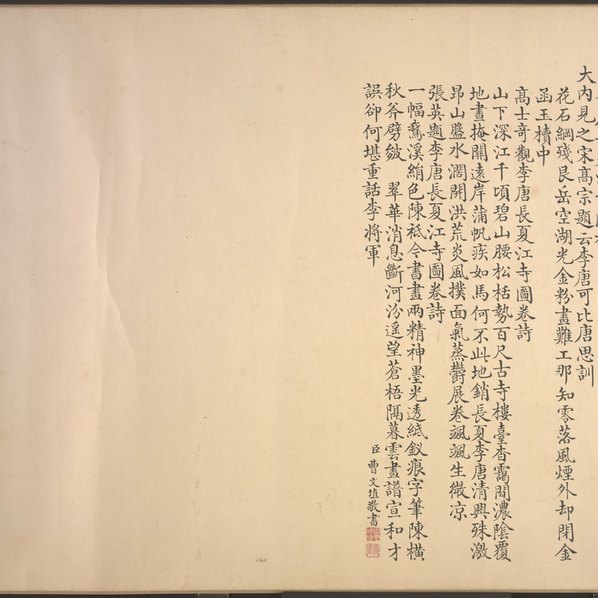 大内見之宋髙宗題云李唐可比唐思訓
花石綱殘艮岳空湖光金粉畫難工那知零落風煙外却閉金
函玉櫝中
髙士奇觀李唐長夏江寺圖卷詩
山下深江千頃碧山腰松栝勢百尺古寺樓臺杳靄間濃陰覆
地晝掩關遠岸蒲帆疾如馬何不此地銷長夏李唐清興殊激
昂山盤水濶開洪荒炎風撲面氣蒸欝展卷颯颯生微凉
張英題李唐長夏江寺圖卷詩
一幅鵞溪絹色陳祗今書畫兩精神墨光透紙釵痕字筆陳橫
秋斧劈皴 翠華消息斷河汾遥望蒼梧隔暮雲畫譜宣和才
誤卻何堪重話李將軍
臣曹文埴敬書